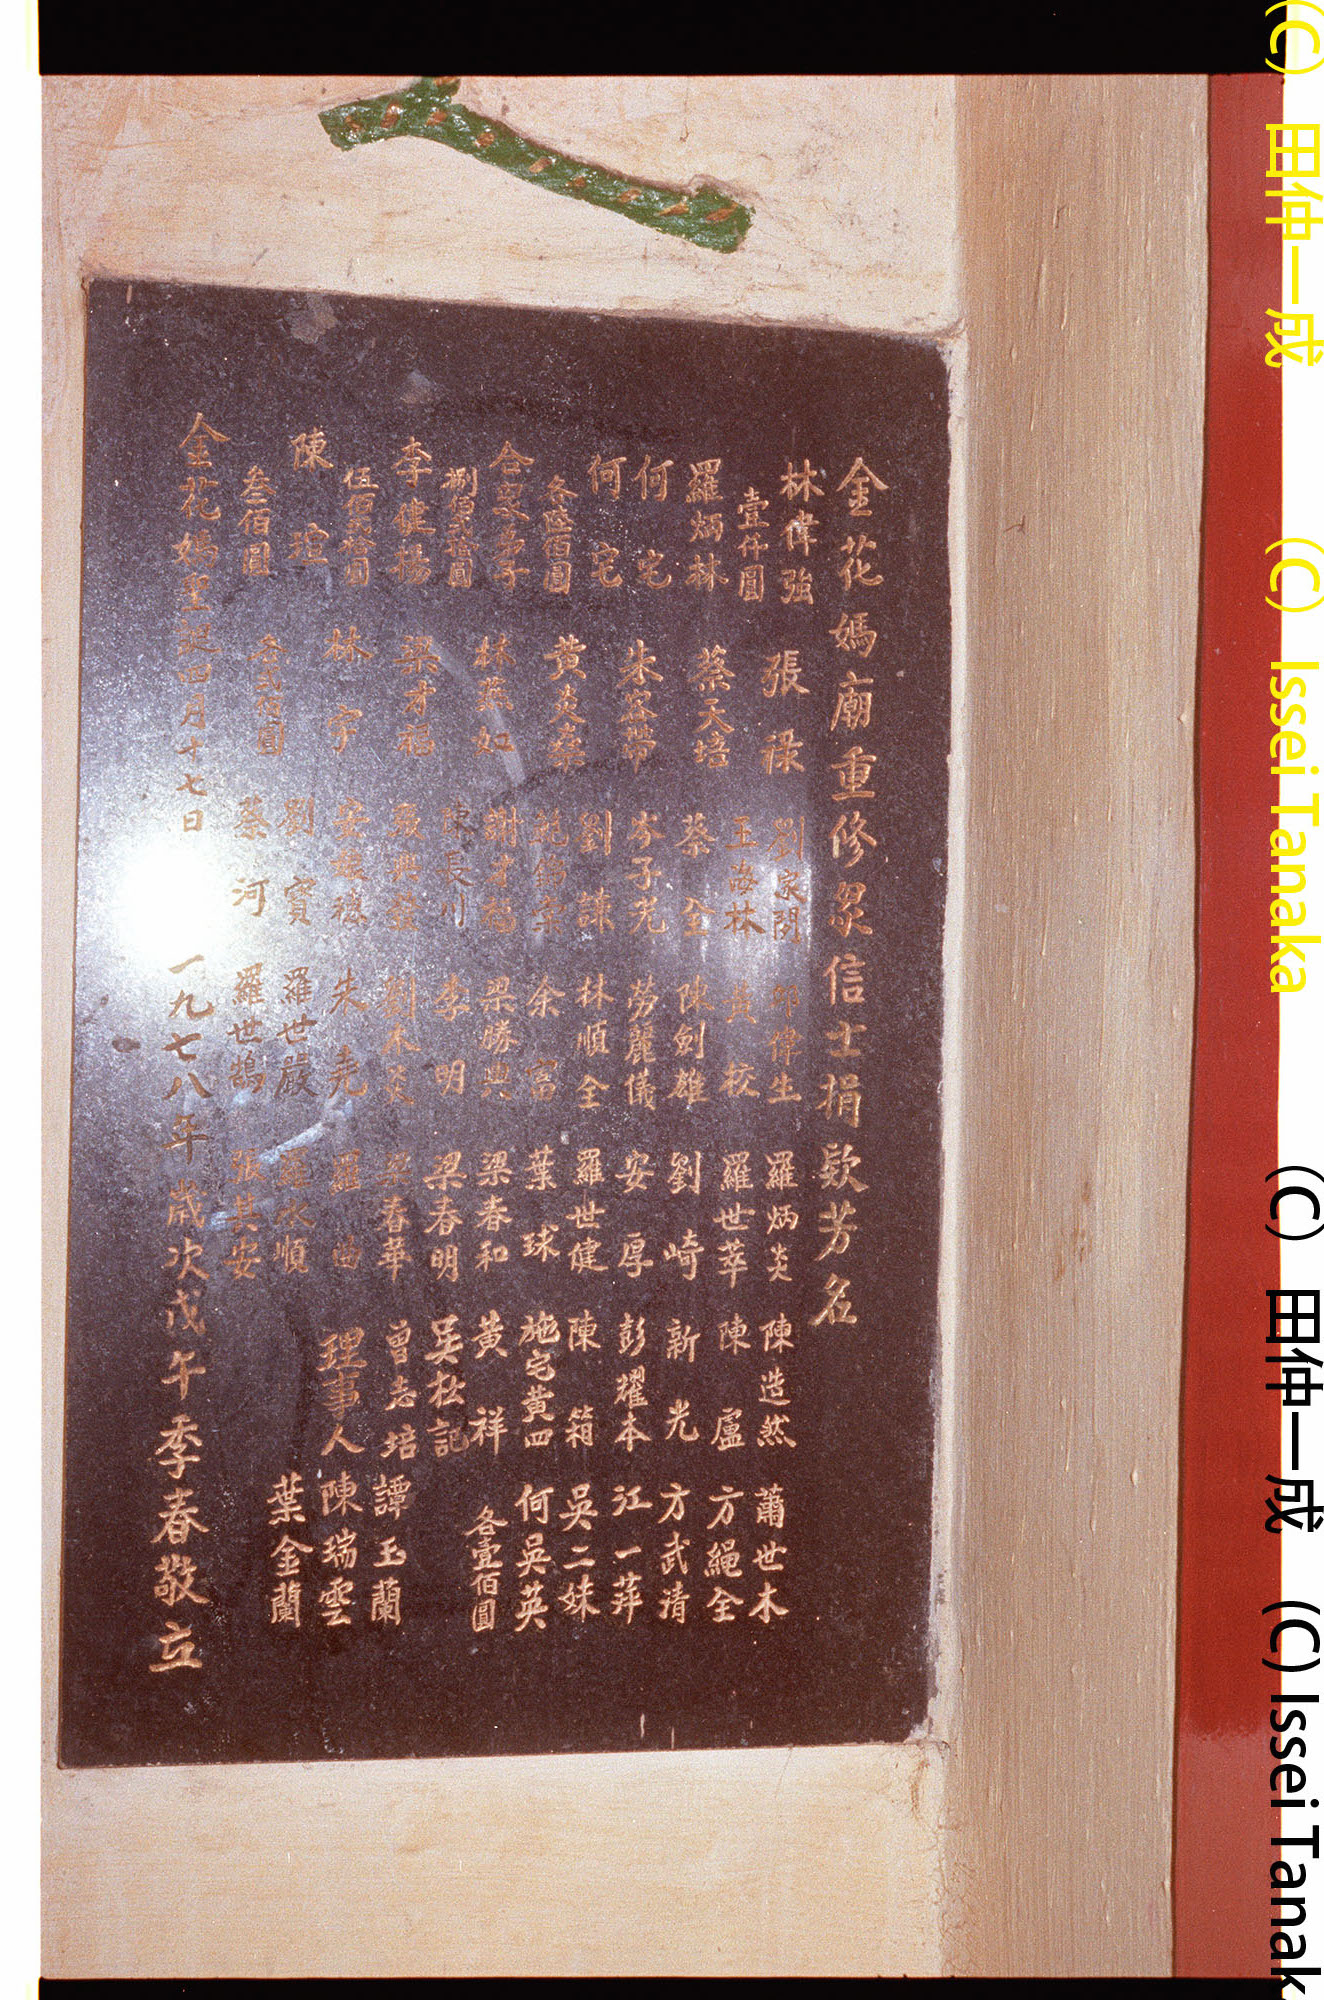 金花媽廟重修眾信士捐款芳名
林偉強 張祿 劉家問 偉生 羅炳炎 陳造然 蕭世木
壹仟圓 王海林 黃校 羅世萃 陳盧 方繩全
羅炳林 蔡天培 蔡全 陳劍雄 劉崎 新光 方武清
何宅 朱容帶 岑子光 勞麗儀 安厚 彭耀本 江一萍
何宅 劉謙 林順全 羅世健 陳箱 吳二妹
佰圓 黃炎燊 余富 葉球 施宅黃四 何吳英
合 弟子 林燕如 謝才 梁勝典 梁春和 黃祥 各壹佰圓
捌佰 拾圓 陳長川 李明 梁春明 吳松記
李健揚 梁才福 張典 劉木炎 梁春華 曾志培 譚玉蘭
伍佰 拾圓 林宇 安 朱堯 羅 理事人 陳瑞雲
陳瑄 劉寶 羅世嚴 羅水順 葉金蘭
叁佰圓 佰圓 蔡河 羅世鵠 張其安
金花媽聖誕四月十七日 一九七八年歲次戊午季春敬立
(C) 田仲一成 (C) Issei Tanaka (C) 田仲一成 (C) Issei Tanak